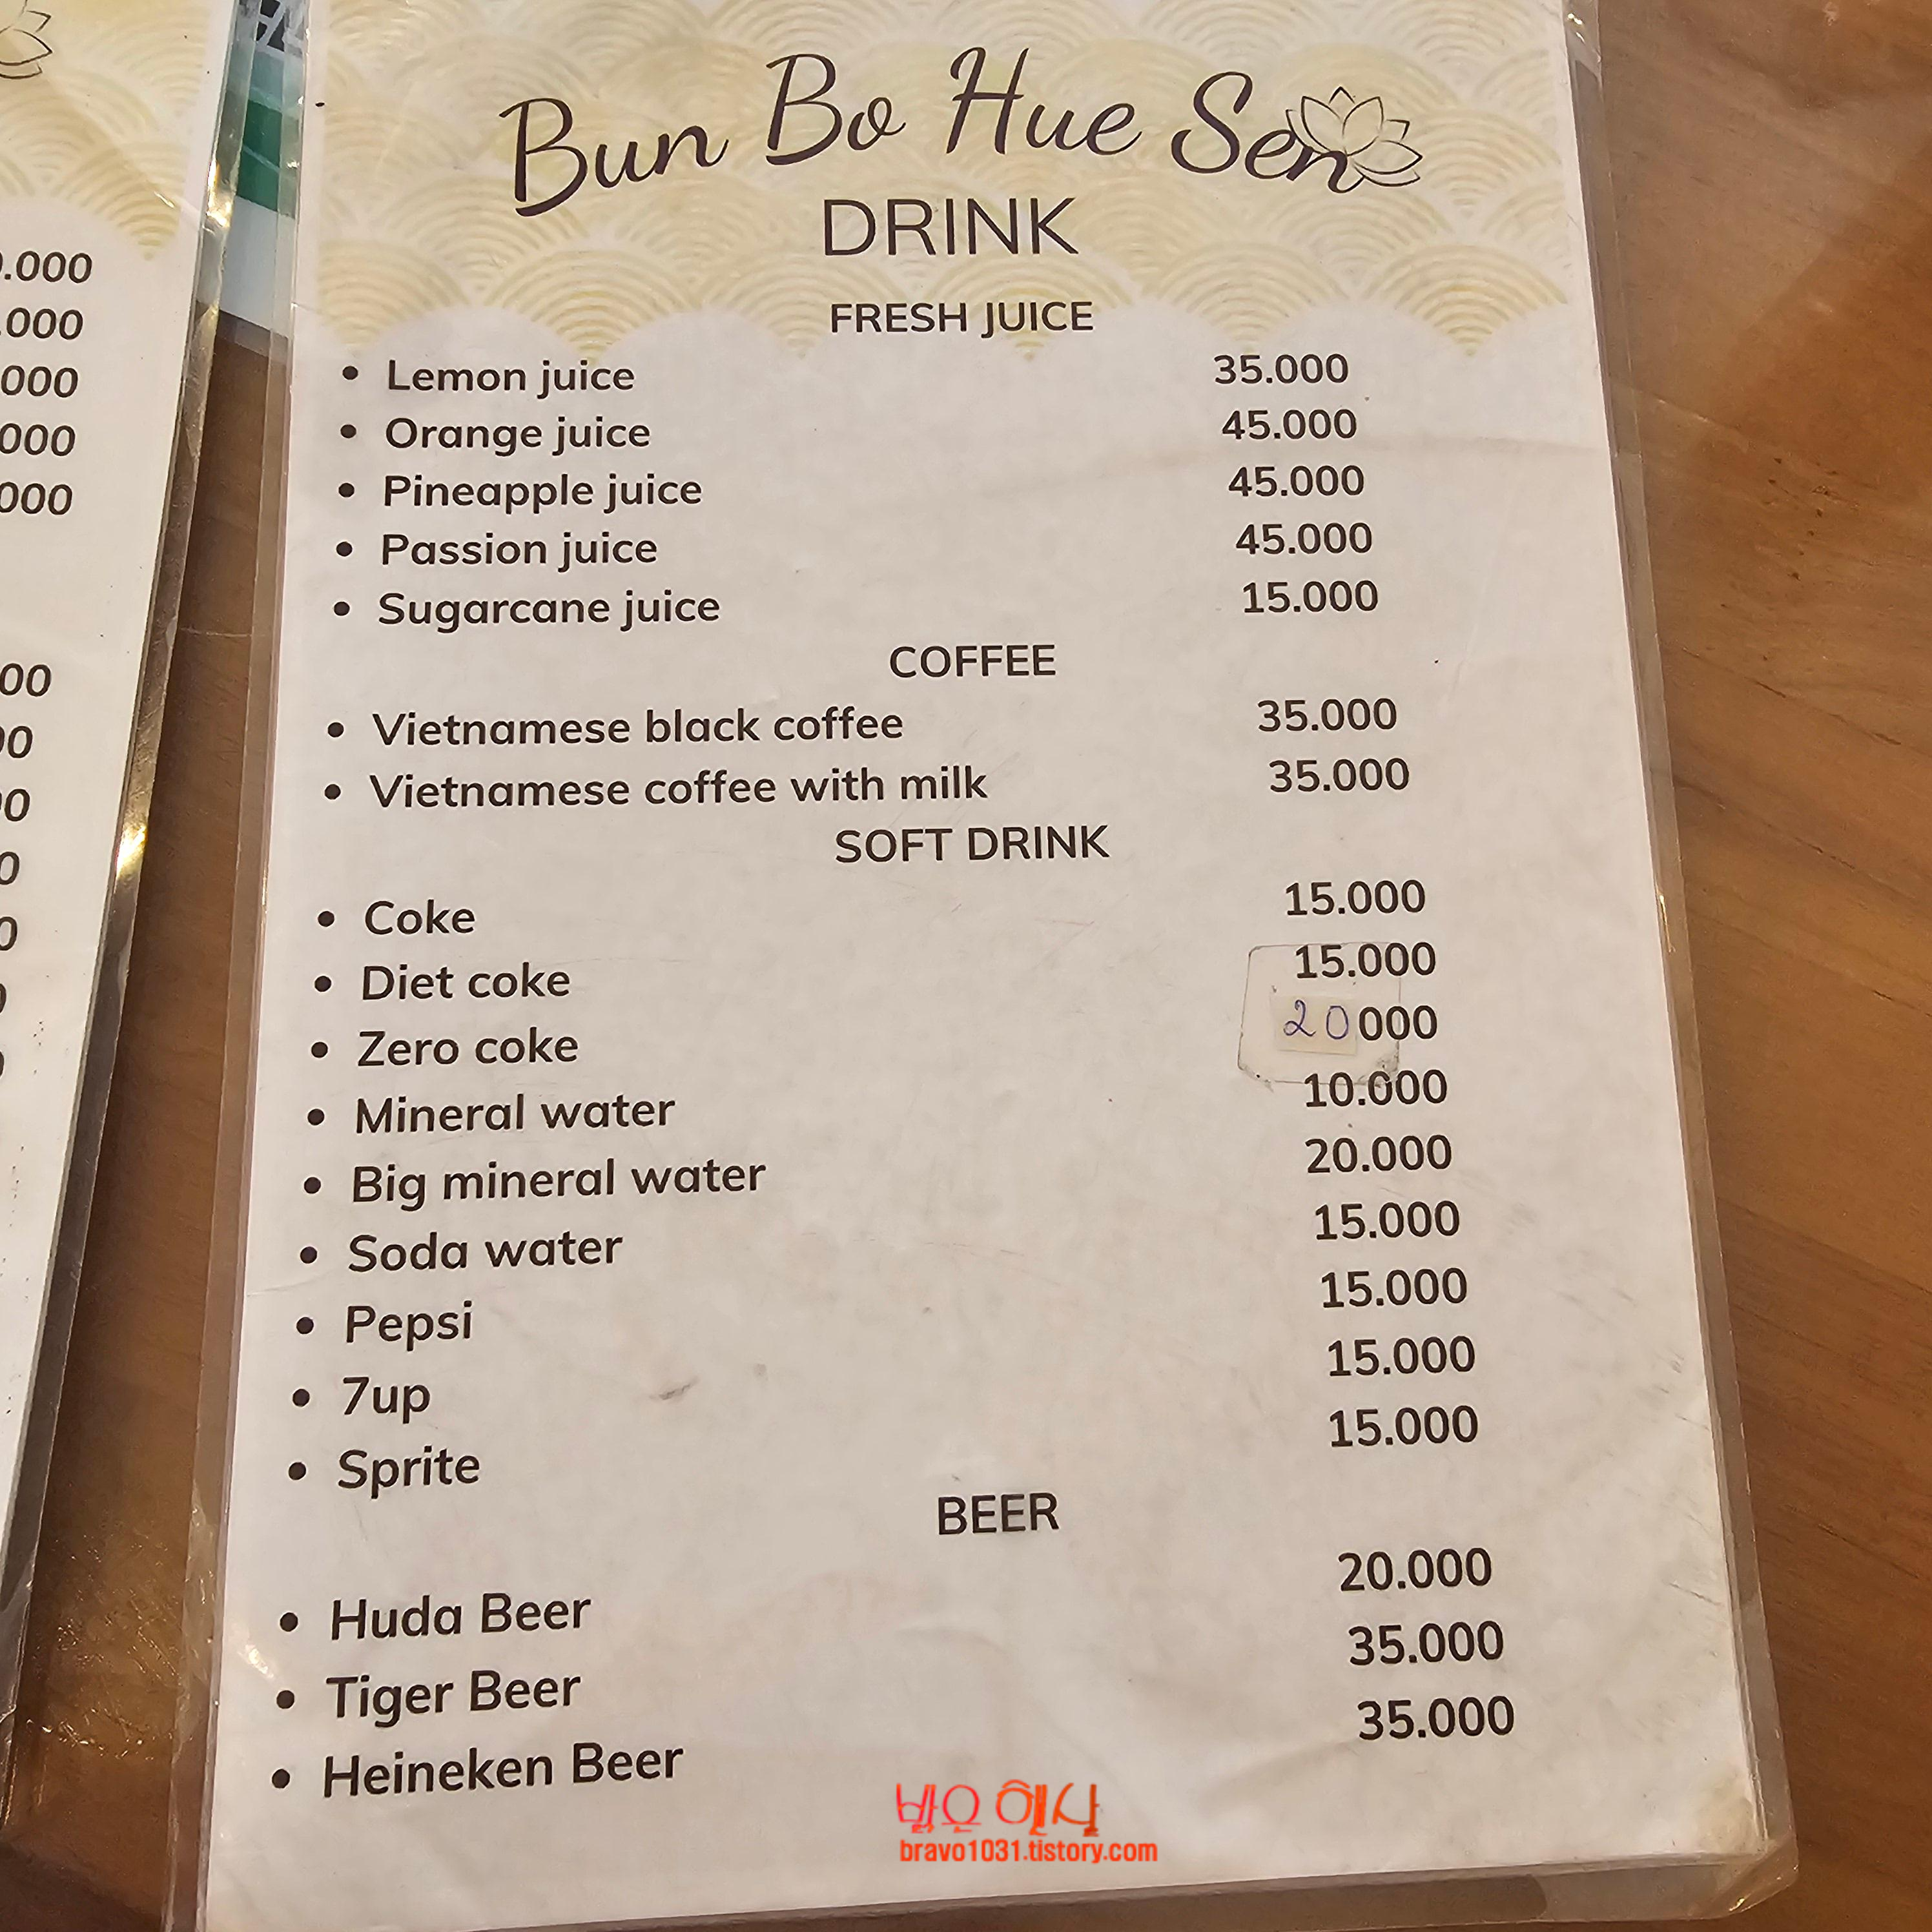 Bun Bo Hue Sen
DRINK
FRESH JUICE
• Lemon juice 35.000
• Orange juice 45.000
• Pineapple juice 45.000
• Passion juice 45.000
• Sugarcane juice 15.000
COFFEE
• Vietnamese black coffee 35.000
• Vietnamese coffee with milk 35.000
SOFT DRINK
• Coke 15.000
• Diet coke 15.000
• Zero coke 20000
• Mineral water 10.000
• Big mineral water 20.000
• Soda water 15.000
• Pepsi 15.000
• 7up 15.000
• Sprite 15.000
BEER
• Huda Beer 20.000
• Tiger Beer 35.000
• Heineken Beer 35.000
밝은 햇살
bravo1031.tistory.com